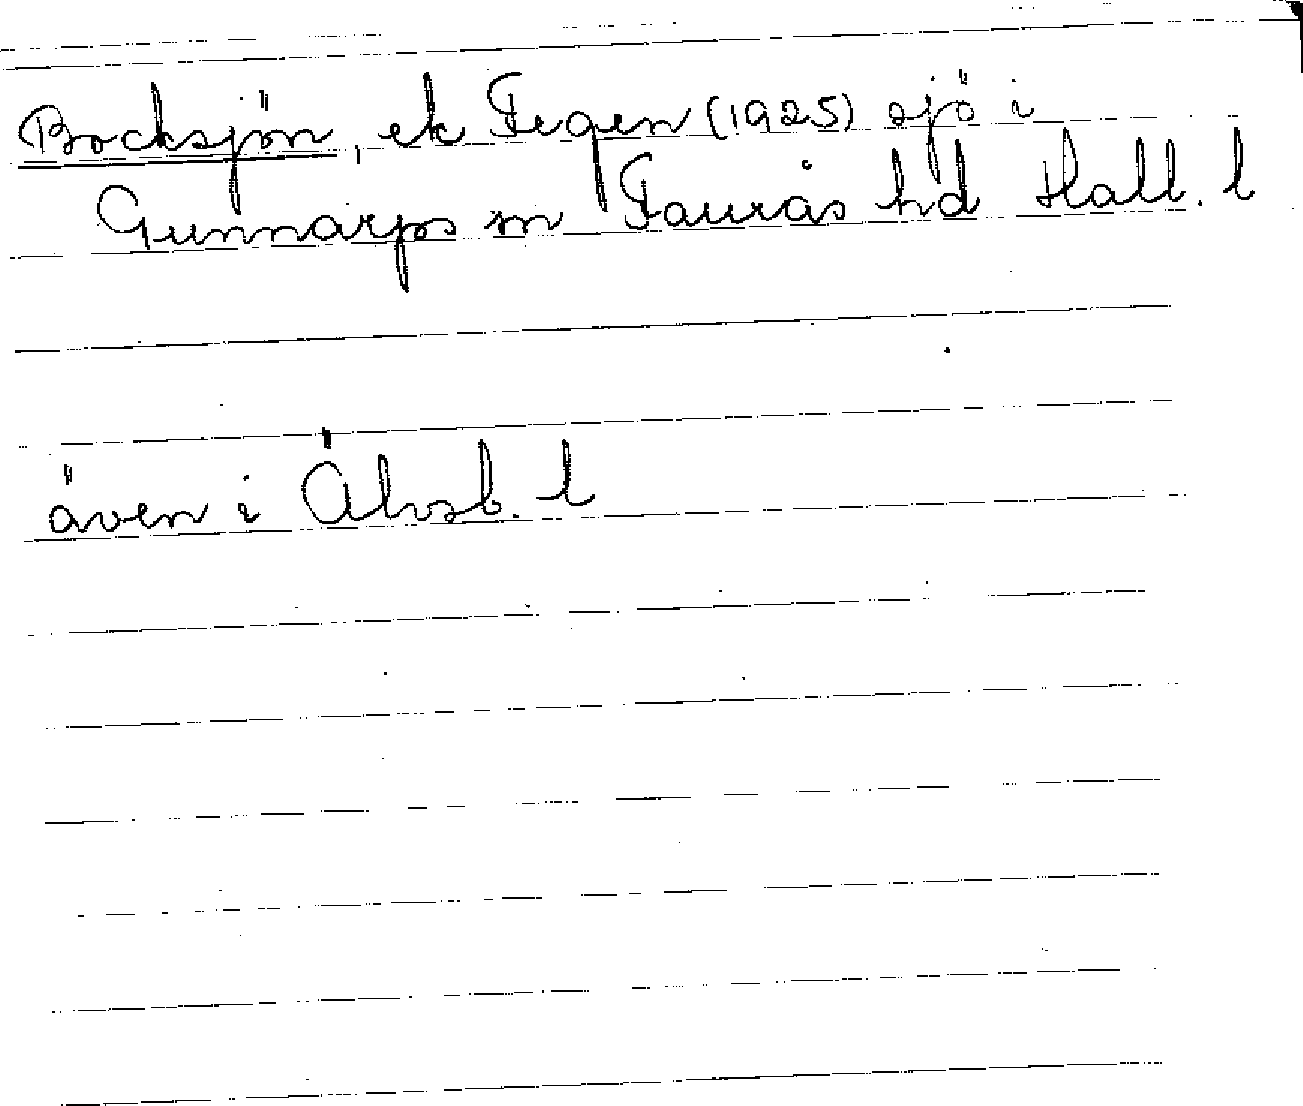 Bocksjön, ek Fegen (1925) sjö i
Gunnarps sn Faurås hd Hall. l
även i Älvsb. l